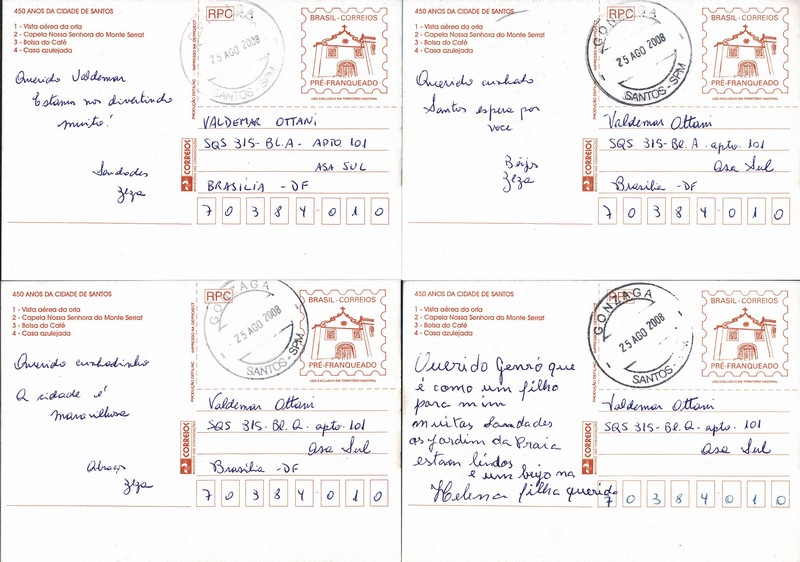 450 ANOS DA CIDADE DE SANTOS
1 - Vista aérea da orla
2 - Capela Nossa Senhora do Monte Serrat
3 - Bolsa do Café
4 - Casa azulejada
Querido Valdemar
Estamos nos divertindo
muito!
Saudades
Zeza
PRODUÇÃO DEFIL/NG
IMPRESSÃO NA DEPROJECT
RPC
GONZAGA
25 AGO 2008
SANTOS - SPM
BRASIL - CORREIOS
PRÉ-FRANQUEADO
USO EXCLUSIVO EM TERRITÓRIO NACIONAL
CORREIOS
VALDEMAR OTTANI
SQS 315 - BL.A - APTO 101
ASA SUL
BRASÍLIA - DF
7 0 3 8 4 - 0 1 0
450 ANOS DA CIDADE DE SANTOS
1 - Vista aérea da orla
2 - Capela Nossa Senhora do Monte Serrat
3 - Bolsa do Café
4 - Casa azulejada
Querido cunhado
Santos espera por
voce
Beijos
Zeza
PRODUÇÃO DEFIL/NG
RPC
GONZAGA
25 AGO 2008
SANTOS - SPM
BRASIL - CORREIOS
PRÉ-FRANQUEADO
USO EXCLUSIVO EM TERRITÓRIO NACIONAL
CORREIOS
Valdemar Ottani
SQS 315 - Bl. A - apto. 101
Asa Sul
Brasilia - DF
7 0 3 8 4 - 0 1 0
450 ANOS DA CIDADE DE SANTOS
1 - Vista aérea da orla
2 - Capela Nossa Senhora do Monte Serrat
3 - Bolsa do Café
4 - Casa azulejada
Querido cunhadinho
A cidade é
maravilhosa
Abraços
Zeza
PRODUÇÃO DEFIL/NG
RPC
GONZAGA
25 AGO 2008
SANTOS - SPM
BRASIL - CORREIOS
PRÉ-FRANQUEADO
USO EXCLUSIVO EM TERRITÓRIO NACIONAL
CORREIOS
Valdemar Ottani
SQS 315 - Bl. A - apto. 101
Asa Sul
Brasilia - DF
7 0 3 8 4 - 0 1 0
450 ANOS DA CIDADE DE SANTOS
1 - Vista aérea da orla
2 - Capela Nossa Senhora do Monte Serrat
3 - Bolsa do Café
4 - Casa azulejada
Querido Genró que
é como um filho
para mim
muitas Saudades
os Jardim da Praia
estam lindos
e um beijo na
Helena filha querida
RPC
GONZAGA
25 AGO 2008
SANTOS - SPM
BRASIL - CORREIOS
PRÉ-FRANQUEADO
USO EXCLUSIVO EM TERRITÓRIO NACIONAL
Valdemar Ottani
SQS 315 - Bl. A - apto. 101
Asa Sul
7 0 3 8 4 0 1 0